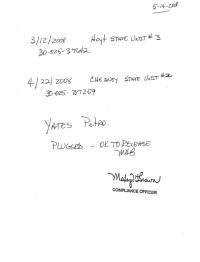 5-14-2008
3/12/2008 Hoyt STATE UNIT # 3
30-025-37642
4/22/2008 CHEYNEY STATE UNIT #
30-025-37259
YATES PETRO.
PLUGGED - OK TO RELEASE
MAB
COMPLIANCE OFFICER